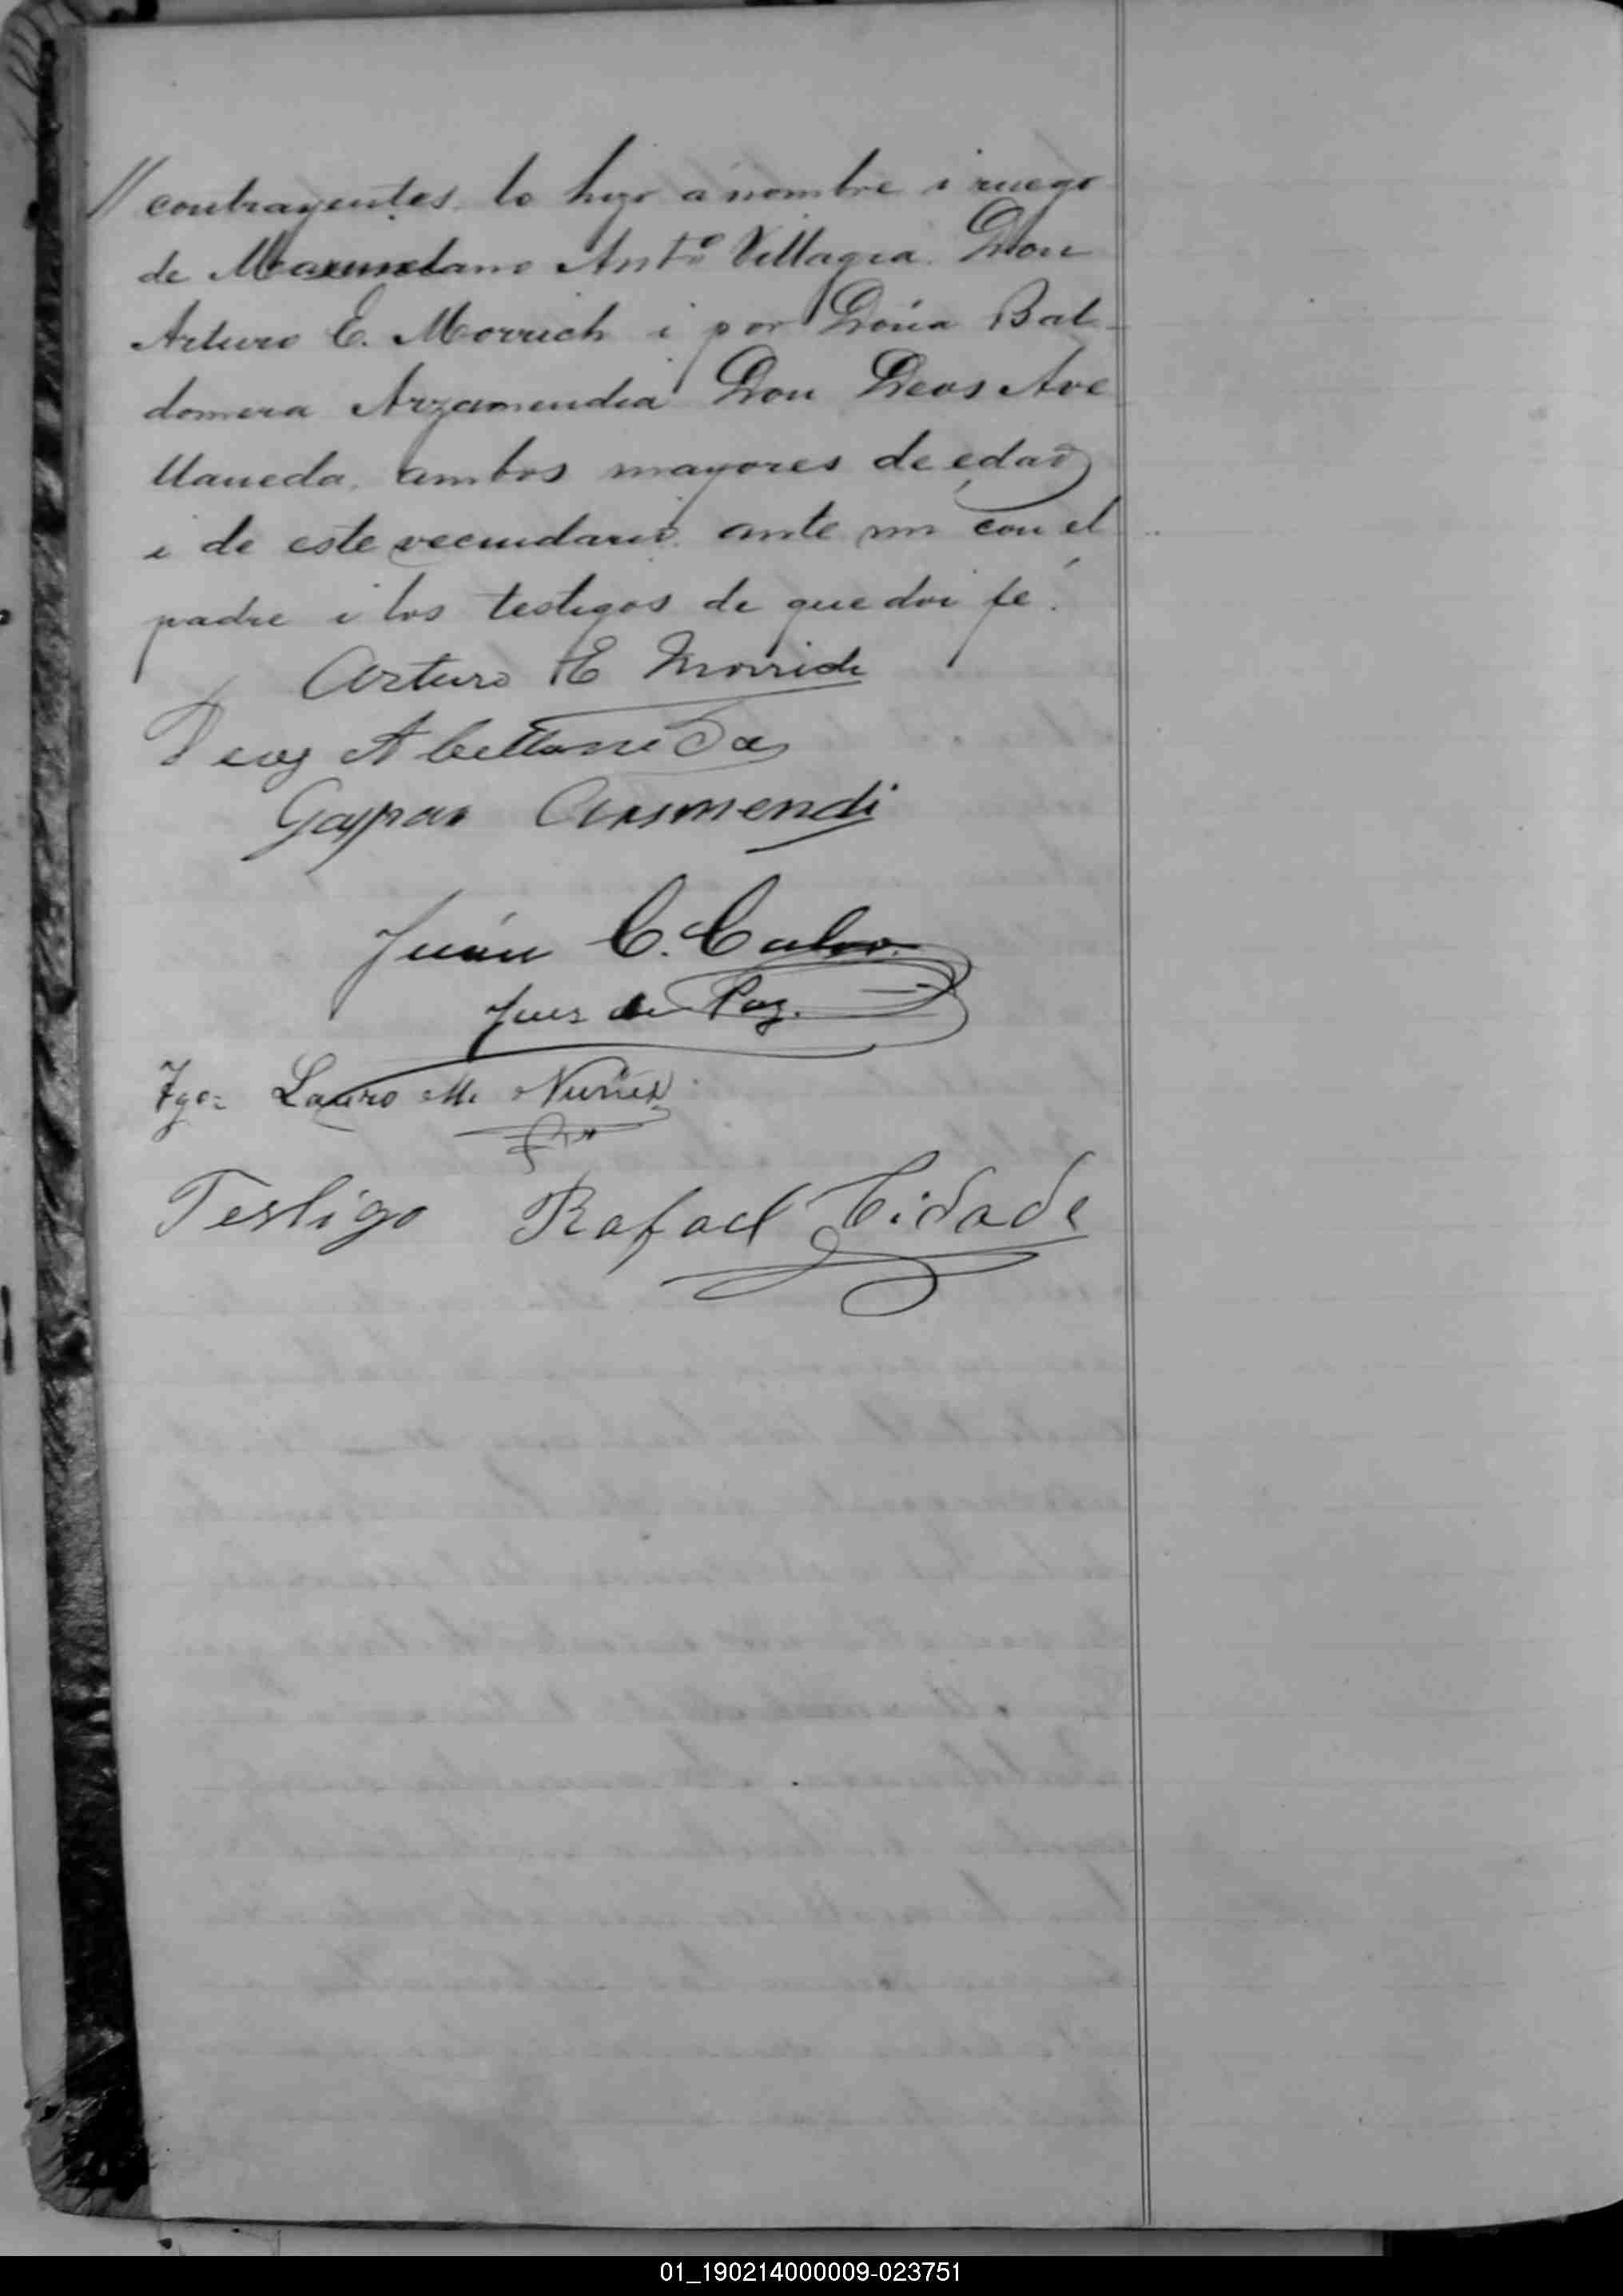 // contrayentes lo hizo a nombre i ruego
de Maximiliano Antº Villagra Don
Arturo E. Morrich i por Doña Bal-
domera Arzamendia Don Deos Ave
llaneda, ambos mayores de edad
i de este vecindario ante mi con el
padre i los testigos de que doi fé.
Arturo E Morrich
Deos Abellaneda
Gaspar Arismendi
Juan C. Calvo
Juez de Paz.
Tgo: Lauro M. Nuñez
Testigo Rafael Cidade
01_190214000009-023751